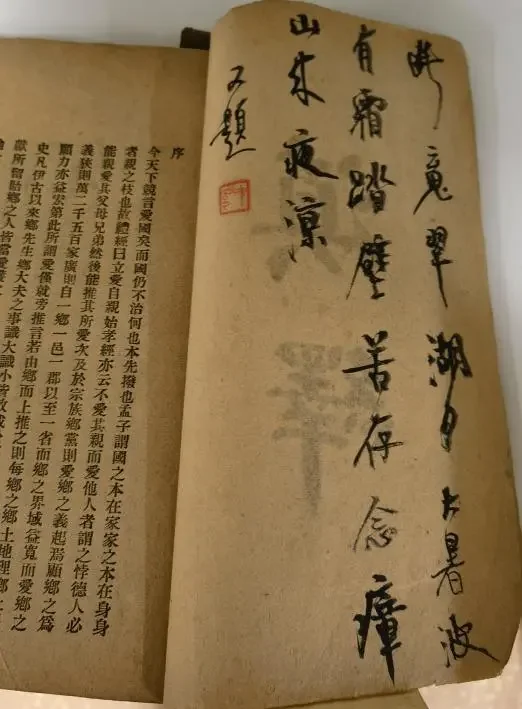 翠湖日大暑波
有霜踏壁苔存念瘴
山來夜涼
又題
序
今天下競言愛國矣而國仍不治何也本先撥也孟子謂國之本在家家之本在身身
者親之枝也故禮經曰立愛自親始孝經亦云不愛其親而愛他人者謂之悖德人必
能親愛其父母兄弟然後能推其所愛次及於宗族鄉黨則愛鄉之義起焉顧鄉之爲
義狹則萬二千五百家廣則自一鄉一邑一郡以至一省而鄉之界域益寬而愛鄉之
願力亦益宏第此所謂愛僅就旁推言若由鄉而上推之則每鄉之鄉土地理鄉
史凡伊古以來鄉先生鄉大夫之事識大識小皆
獻所留貽鄉之人皆當愛護